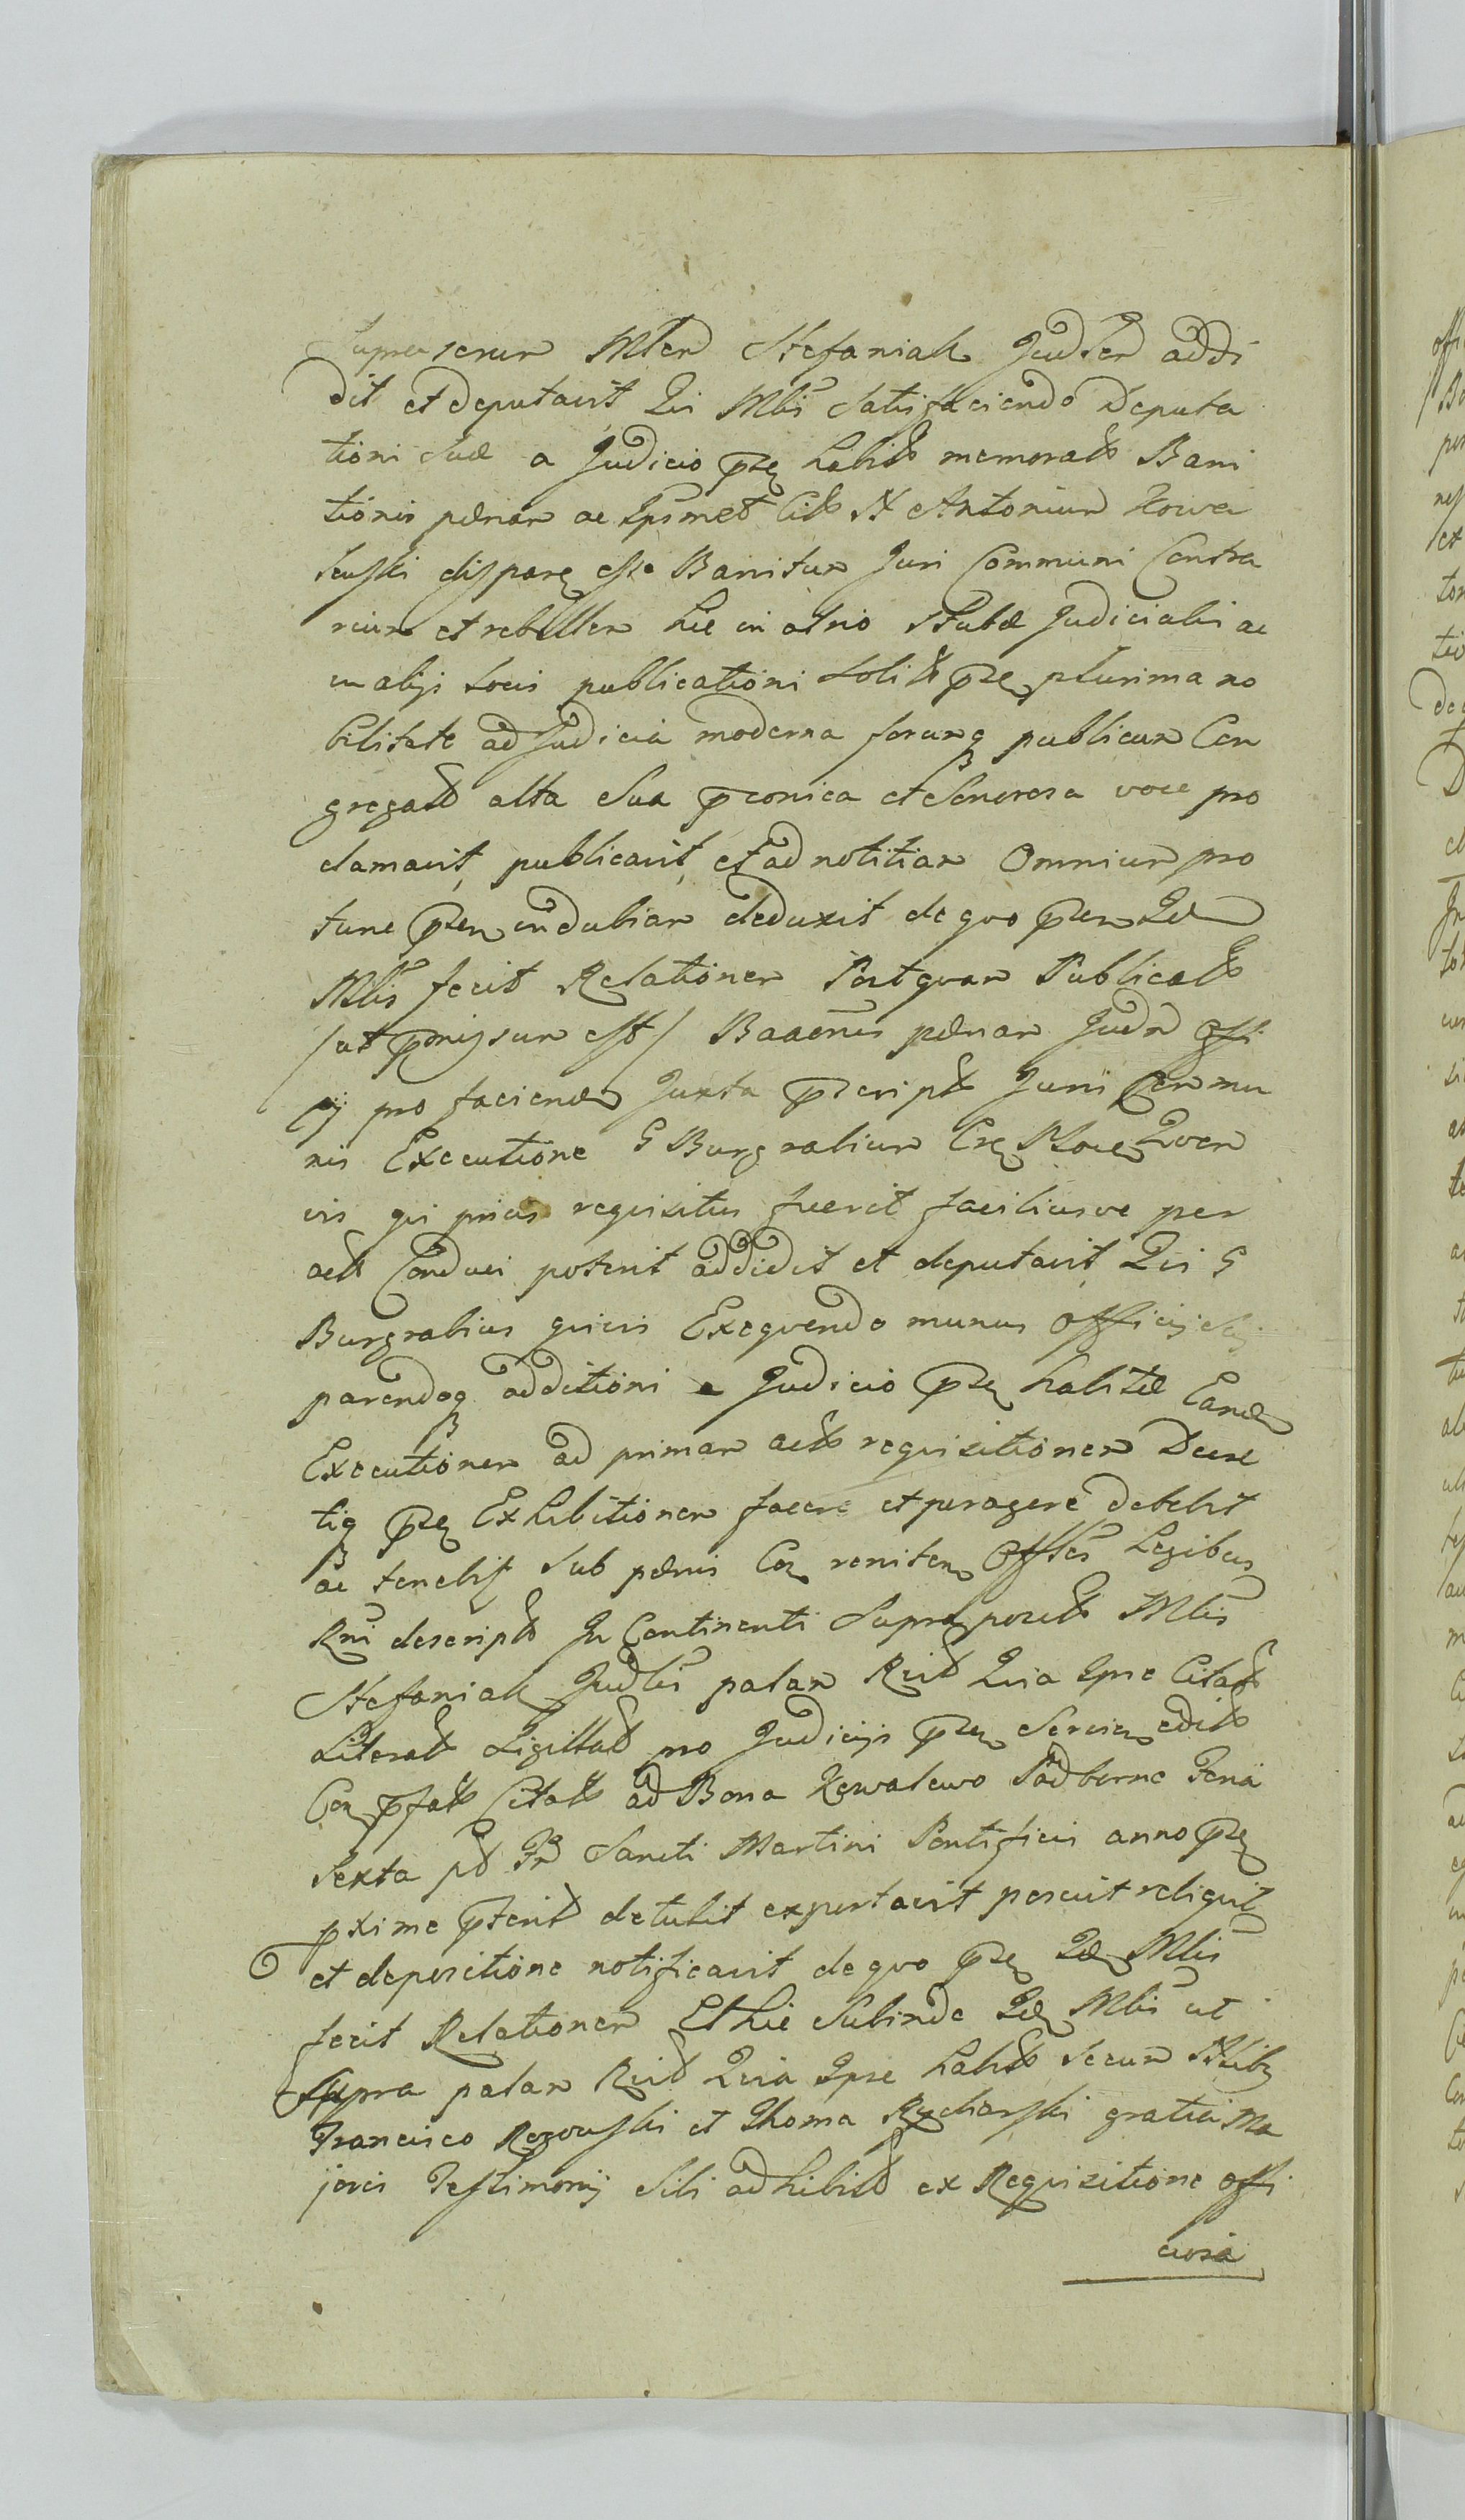 Suprascrum Mlem Stefaniak Judlem addi
dit et deputavit Qui Mlis Satisfaciendo Deputa
tioni Suæ a Judicio pñs habit memorat Bani
tionis pænam ac Ipsmet Cit N Antonium Kowa
lewski disparem esse Banitum Juri Communi Contra
rium et rebellem hic in atrio Stubæ Judicialis ac
in alijs locis publicationi Solit pñs plurima no
bilitate ad Judicia moderna forumq publicum Con
gregat alta Sua pconica et Sonorosa voce pro
clamavit, publicavit, et ad notitiam Omnium pro
tunc pñn indubiam deduxit de quo pñm Id
Mlis fecit Relationem Postquam Publicat
/ut pmissum est/ Baaonis pænam Judm Offi
cij pro faciend Juxta pscript Juris Commu
nis Executione G Burgrabium Cas Ploc Quem
vis qui prius requisitus fuerit faciliusve per
act Conduci poterit addidit et deputavit Qui G
Burgrabius quivis Exequendo munus Officij Sui
parendoq additioni a Judicio pñs habitæ Eand
Executionem ad primam act requisitionem Decre
tiq pñs Exhibitionem facere et peragere debebit
ac tenebit Sub pænis Con renitem Offles Legibus
Rni descript In Continenti Supraposit Mlis
Stefaniak Judlis palam Rcit Quia Ipse Citat
Literat Sigillat pro Judicijs pñn Servien edit
Con pfat Citat ad Bona Kowalewo Podborne Feria
Sexta pt Fm Sancti Martini Pontificis anno pñs
pxime pterit detulit exportavit posuit reliquit
et depositione notificavit de quo pñs Id Mlis
fecit Relationem Et hic Subinde Id Mlis ut
Supra palam Rcit Quia Ipse habit Secum Nlib
Francisco Rezowski et Thoma Rycharski gratia ma
joris Testimonij Sibi adhibit ex Requisitione offi
ciosa